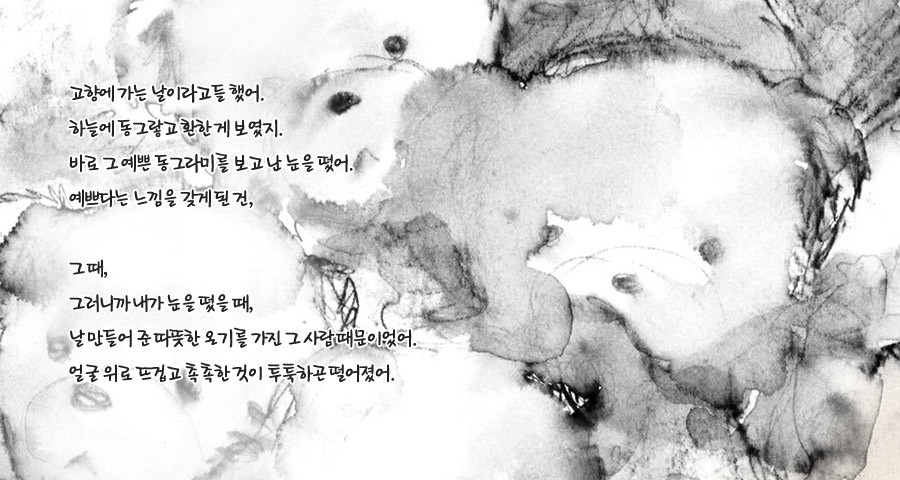 고향에 가는 날이라고들 했어.
하늘에 동그랗고 환한 게 보였지.
바로 그 예쁜 동그라미를 보고 난 눈을 떴어.
예쁘다는 느낌을 갖게 된 건,
그 때,
그러니까 내가 눈을 떴을 때,
날 만들어 준 따뜻한 온기를 가진 그 사람 때문이었어.
얼굴 위로 뜨겁고 촉촉한 것이 투툭하곤 떨어졌어.